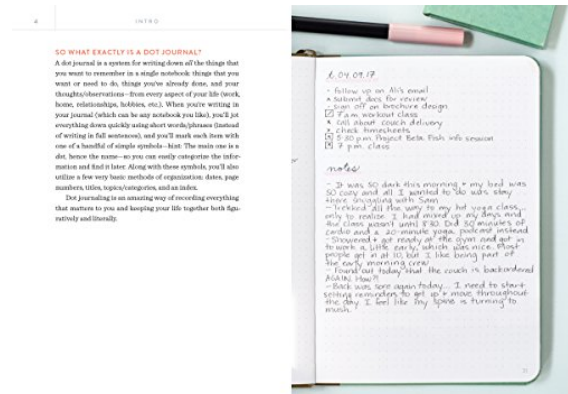 4
INTRO
SO WHAT EXACTLY IS A DOT JOURNAL?
A dot journal is a system for writing down all the things that
you want to remember in a single notebook: things that you
want or need to do, things you've already done, and your
thoughts/observations—from every aspect of your life (work,
home, relationships, hobbies, etc.). When you're writing in
your journal (which can be any notebook you like), you'll jot
everything down quickly using short words/phrases (instead
of writing in full sentences), and you'll mark each item with
one of a handful of simple symbols—hint: The main one is a
dot, hence the name—so you can easily categorize the infor-
mation and find it later. Along with these symbols, you'll also
utilize a few very basic methods of organization: dates, page
numbers, titles, topics/categories, and an index.
Dot journaling is an amazing way of recording everything
that matters to you and keeping your life together both figu-
ratively and literally.
04.09.17
- follow up on Ali's email
x submit docs for review
- sign off on brochure design
7 a.m. workout class
x call about couch delivery
x check timesheets
x 5:30 p.m. Project Beta Fish info session
x 7 p.m. class
notes
- It was SO dark this morning + my bed was
so cozy and all I wanted to do was stay
there snuggling with Sam
- Trekked all the way to my hot yoga class...
only to realize I had mixed up my days and
the class wasn't until 8:30. Did 30 minutes of
cardio and a 20-minute yoga podcast instead
- Showered + got ready at the gym and got in
to work a little early, which was nice. Most
people get in at 10, but I like being part of
the early morning crew
- Found out today that the couch is backordered
AGAIN. How?!
- Back was sore again today... I need to start
setting reminders to get up + move throughout
the day. I feel like my spine is turning to
mush.